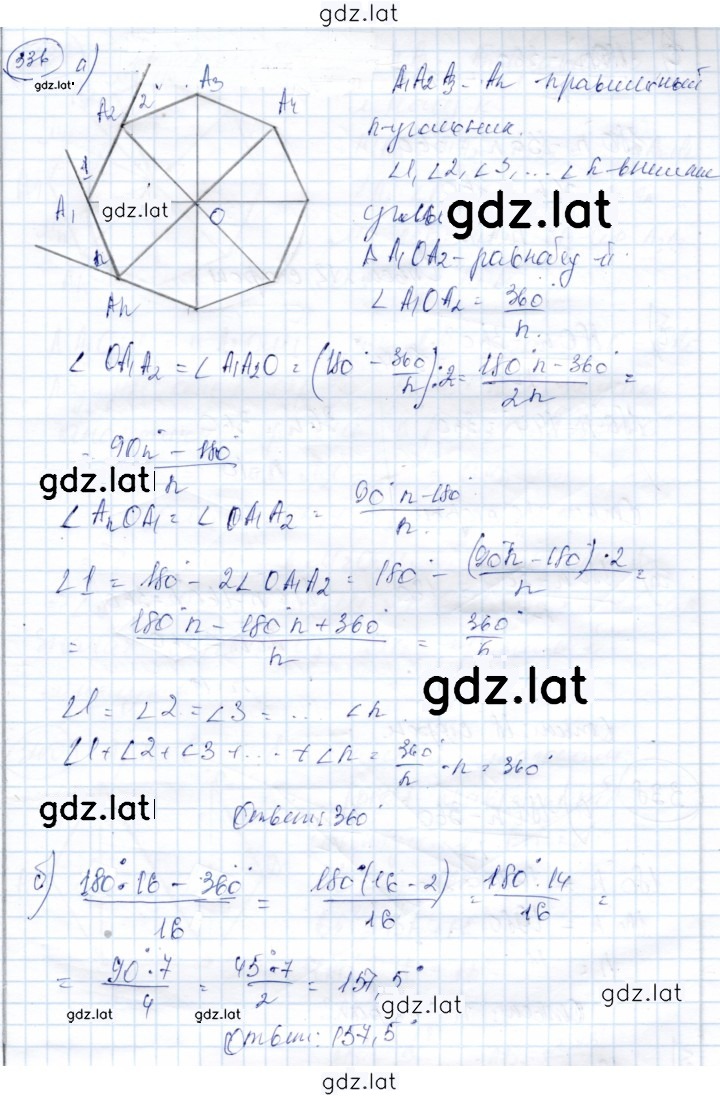 gdz.lat
336 а)
gdz.lat
A3
A2 2 A4
1
A1 gdz.lat O
n
An
A1A2A3...An правильный
n-угольник.
∠1, ∠2, ∠3, ... ∠n - внешние
углы gdz.lat
Δ A1OA2 - равнобед-й.
∠ A1OA2 = 360°/n.
∠ OA1A2 = ∠ A1A2O = (180° - 360°/n) : 2 = (180°n - 360°)/2n =
= (90n° - 180°)/n
gdz.lat
∠ AnOA1 = ∠ OA1A2 = (90°n - 180°)/n.
∠1 = 180° - 2∠OA1A2 = 180° - ((90°n - 180°)·2)/n =
= (180°n - 180°n + 360°)/n = 360°/n.
gdz.lat
∠1 = ∠2 = ∠3 = ... ∠n
∠1 + ∠2 + ∠3 + ... + ∠n = 360°/n · n = 360°
gdz.lat
Ответ: 360°
б) (180°·16 - 360°)/16 = (180°(16 - 2))/16 = (180°·14)/16 =
= (90°·7)/4 = (45°·7)/2 = 157,5°
gdz.lat gdz.lat gdz.lat gdz.lat
Ответ: 157,5°
gdz.lat